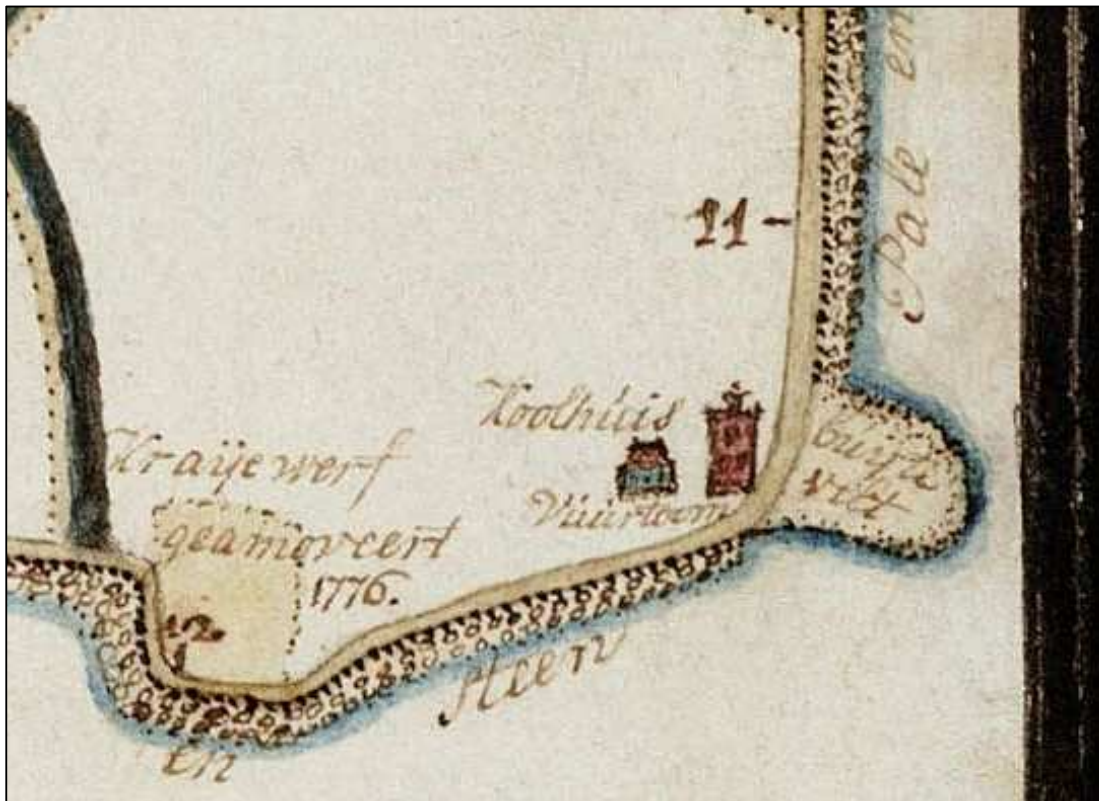 Pale en
11
Koolhuis
Vuurtoorn
Kraijewerf
geamoveert
1776.
12
Steen
en